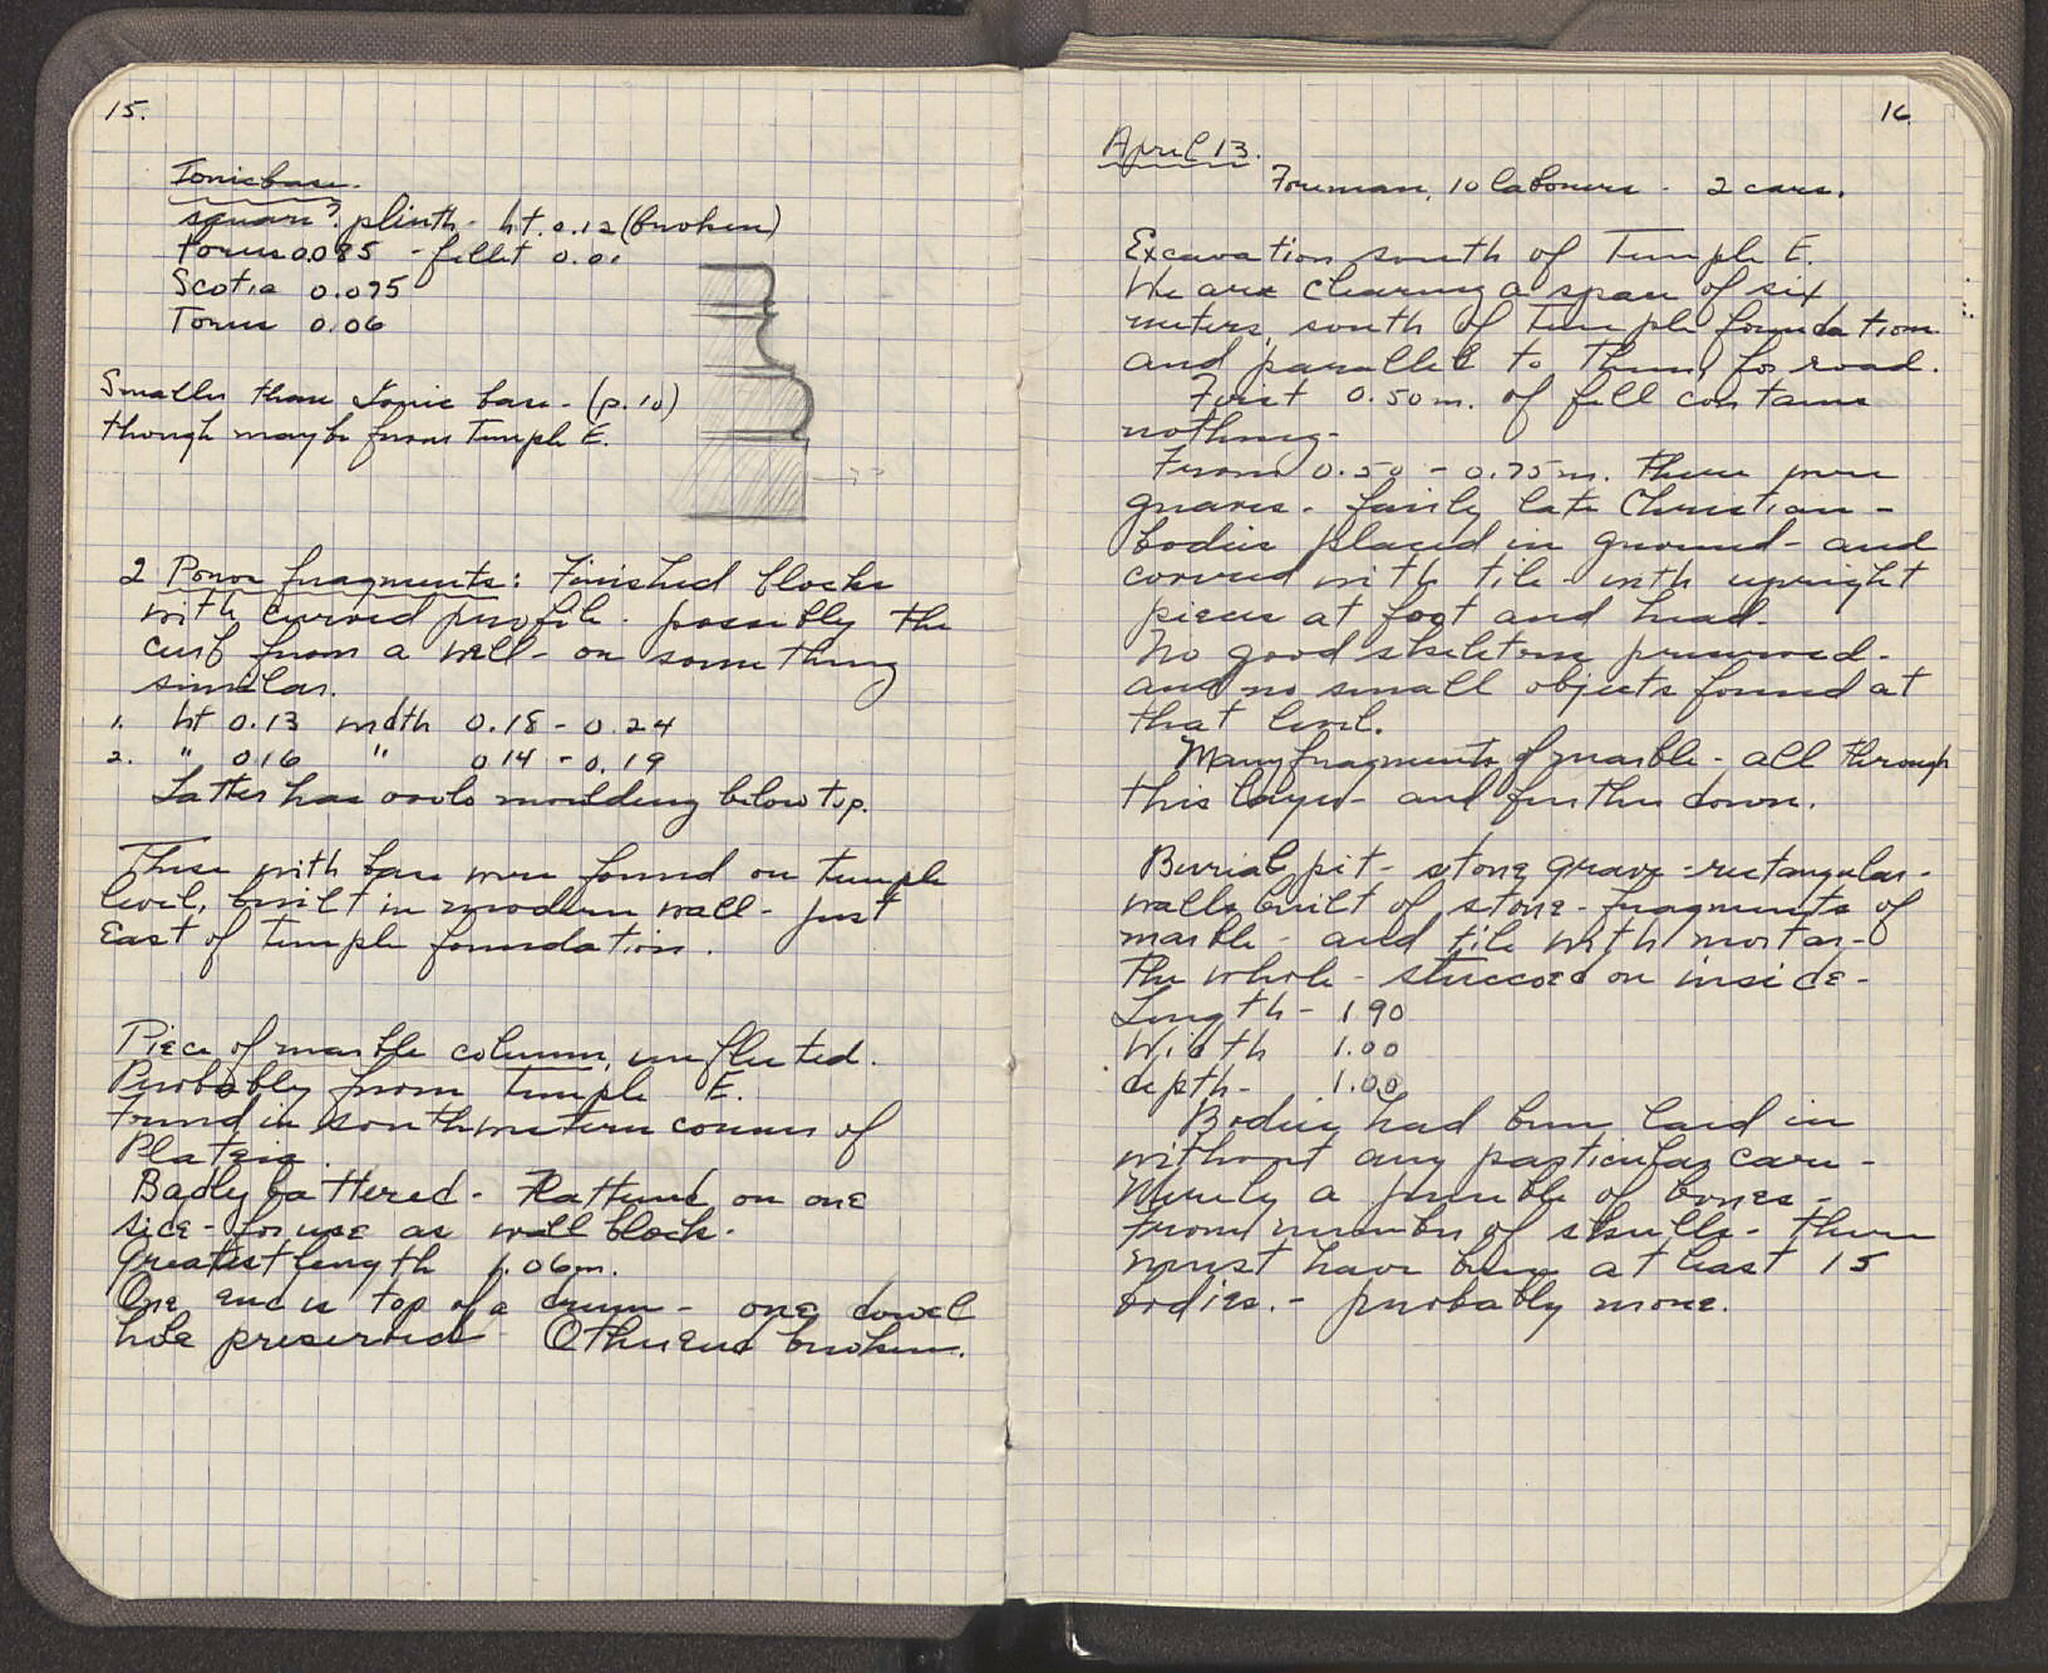 15.
Ionic base.
square? plinth - ht. 0.12 (broken)
torus 0.085 - fillet 0.01
Scotia 0.075
Torus 0.06
Smaller than Ionic base - (p. 10)
though may be from Temple E.
2 Poros fragments: Finished blocks
with curved profile. possibly the
curb from a well - or something
similar.
1. ht 0.13 width 0.18 - 0.24
2. " 0.16 " 0.14 - 0.19
Latter has ovolo moulding below top.
These with base were found on temple
level, built in modern wall - just
East of temple foundation.
Piece of marble column, unfluted.
Probably from Temple E.
Found in southwestern corner of
Plateia.
Badly battered - Flattened on one
side - for use as wall block.
Greatest length 1.06m.
One end is top of a drum - one dowel
hole preserved - Other end broken.
16.
April 13.
Foreman, 10 laborers - 2 cars.
Excavation south of Temple E.
We are clearing a space of six
meters, south of temple foundation
and parallel to them, for road.
First 0.50 m. of fill contains
nothing -
From 0.50 - 0.75 m. there were
graves - fairly late Christian -
bodies placed in ground - and
covered with tile - with upright
pieces at foot and head -
No good skeletons preserved -
and no small objects found at
that level.
Many fragments of marble - all through
this layer - and further down.
Burial pit - stone grave - rectangular -
walls built of stone - fragments of
marble - and tile with mortar -
The whole - stuccoed on inside -
Length - 1.90
Width 1.00
depth - 1.00
Bodies had been laid in
without any particular care -
Merely a jumble of bones -
From number of skulls - there
must have been at least 15
bodies. - probably more.